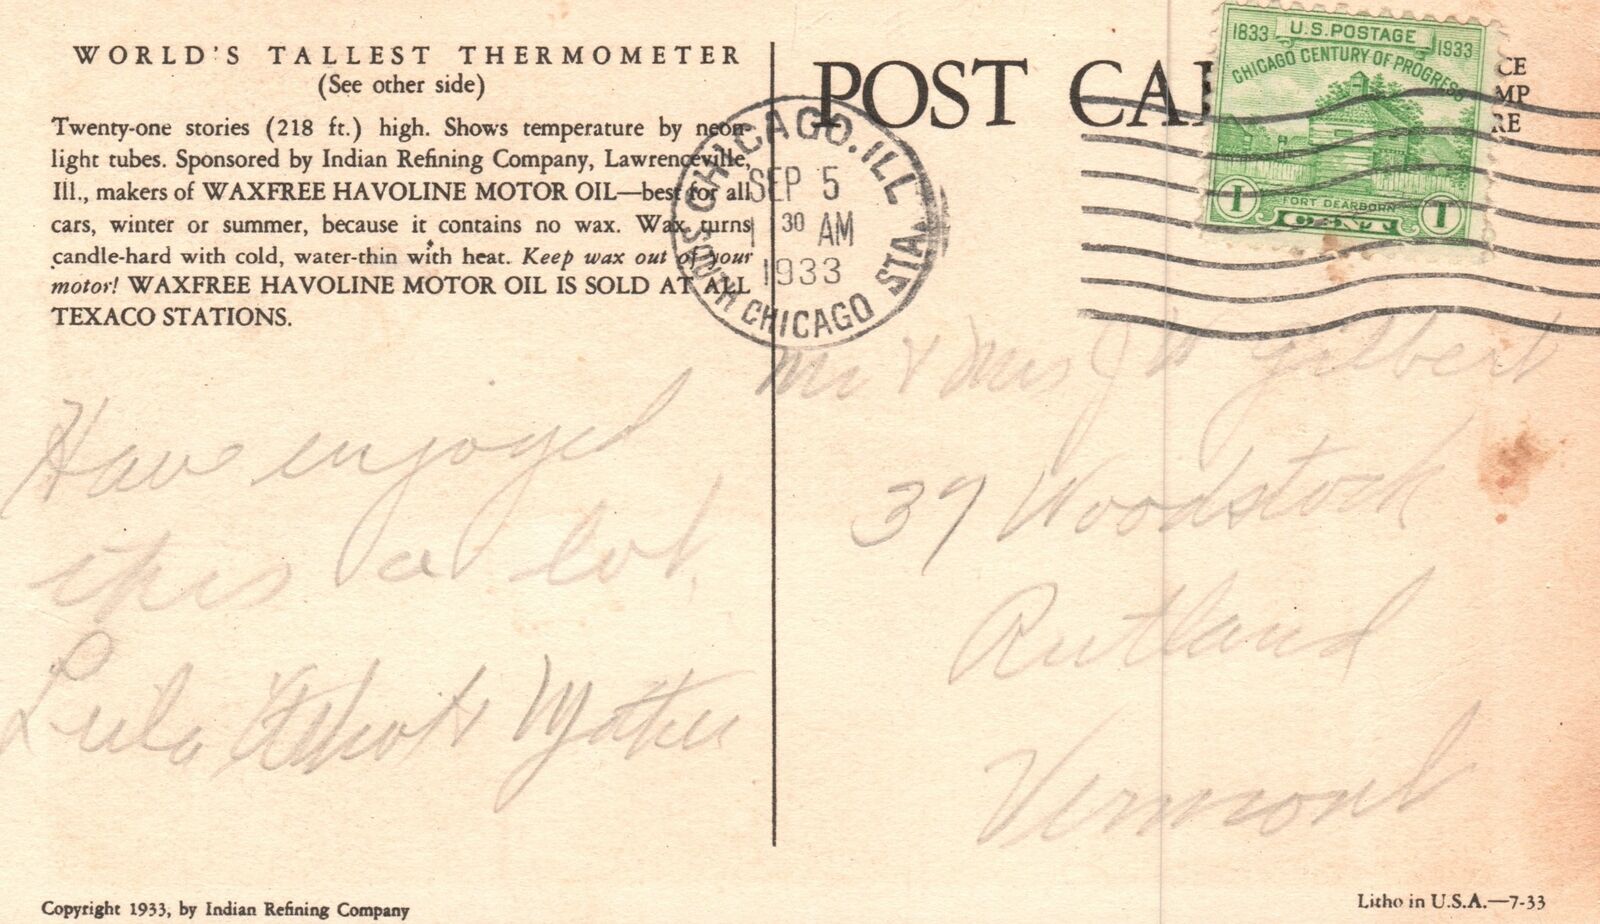 WORLD'S TALLEST THERMOMETER
(See other side)
Twenty-one stories (218 ft.) high. Shows temperature by neon
light tubes. Sponsored by Indian Refining Company, Lawrenceville,
Ill., makers of WAXFREE HAVOLINE MOTOR OIL—best for all
cars, winter or summer, because it contains no wax. Wax turns
candle-hard with cold, water-thin with heat. Keep wax out of your
motor! WAXFREE HAVOLINE MOTOR OIL IS SOLD AT ALL
TEXACO STATIONS.
Have enjoyed
this a lot.
Lula
Copyright 1933, by Indian Refining Company
POST CA
CE
MP
RE
1833 U.S. POSTAGE 1933
CHICAGO CENTURY OF PROGRESS
FORT DEARBORN
1 CENT 1
CHICAGO, ILL
SEP 5
1 30 AM
1933
SOUTH CHICAGO STA.
Mr & Mrs J W Gilbert
37 Woodstock
Rutland
Vermont
Litho in U.S.A.—7-33